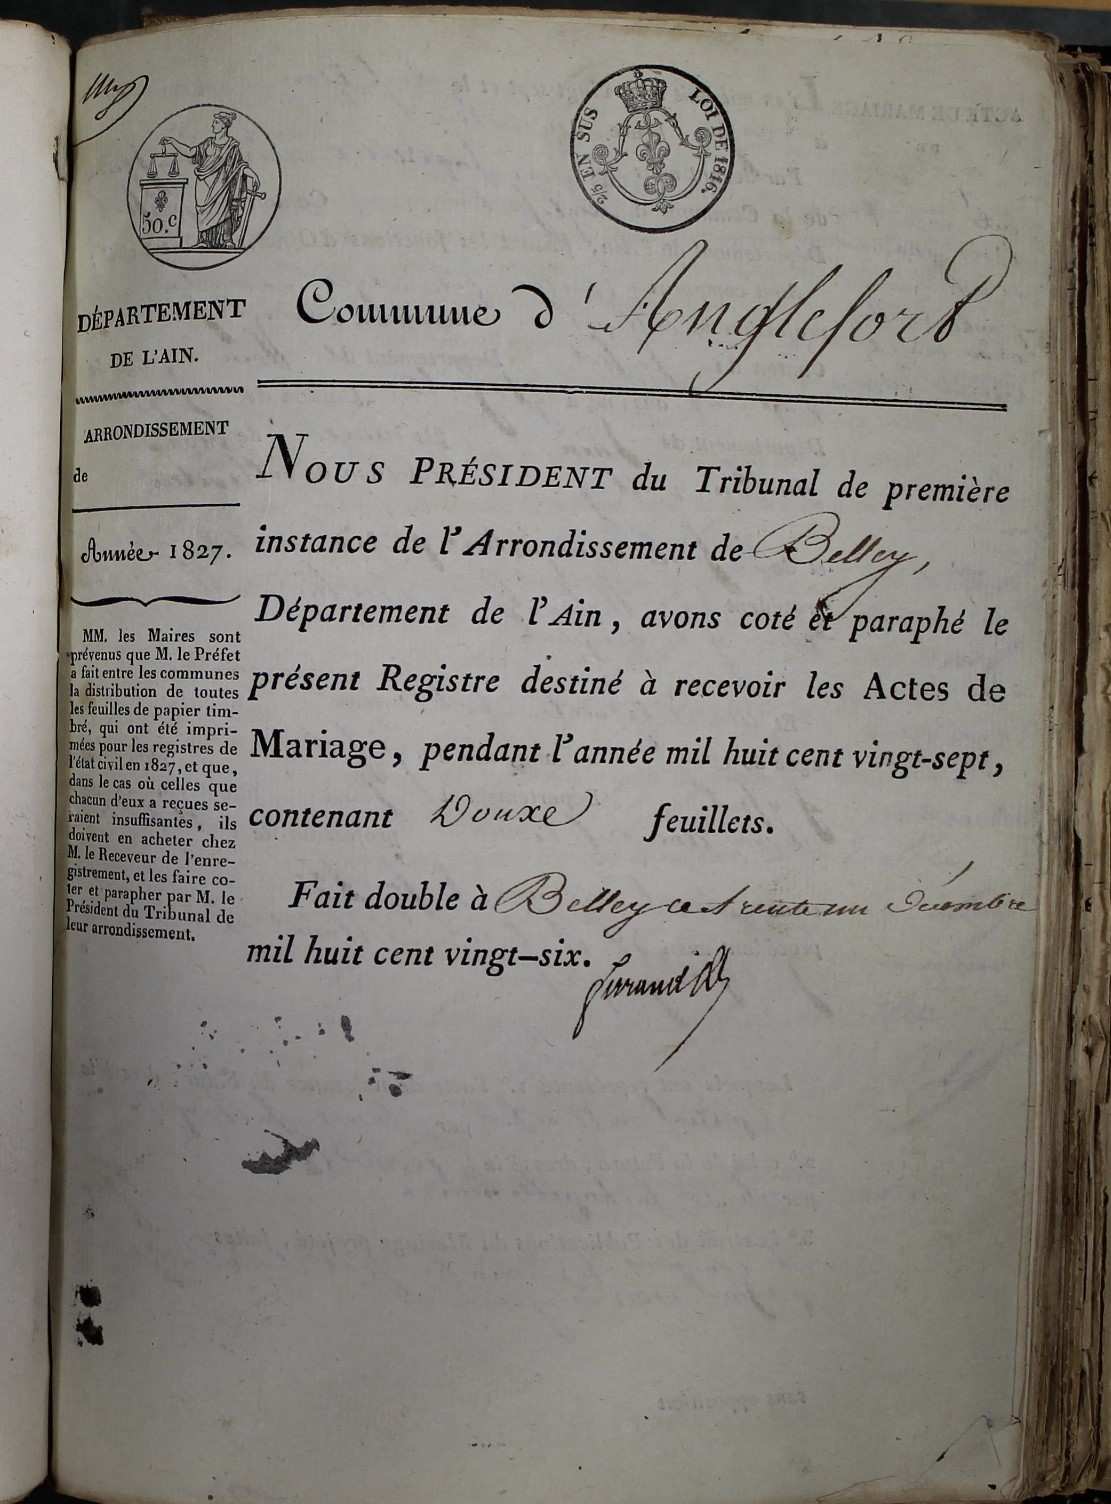 50.c
2/5 EN SUS
LOI DE 1816.
DÉPARTEMENT
DE L'AIN.
ARRONDISSEMENT
de
Année 1827.
MM. les Maires sont
prévenus que M. le Préfet
a fait entre les communes
la distribution de toutes
les feuilles de papier tim-
bré, qui ont été impri-
mées pour les registres de
l'état civil en 1827, et que,
dans le cas où celles que
chacun d'eux a reçues se-
raient insuffisantes, ils
doivent en acheter chez
M. le Receveur de l'enre-
gistrement, et les faire co-
ter et parapher par M. le
Président du Tribunal de
leur arrondissement.
Commune d'Anglefort
NOUS PRÉSIDENT du Tribunal de première
instance de l'Arrondissement de Belley,
Département de l'Ain, avons coté et paraphé le
présent Registre destiné à recevoir les Actes de
Mariage, pendant l'année mil huit cent vingt-sept,
contenant Douze feuillets.
Fait double à Belley ce trente un Décembre
mil huit cent vingt-six.